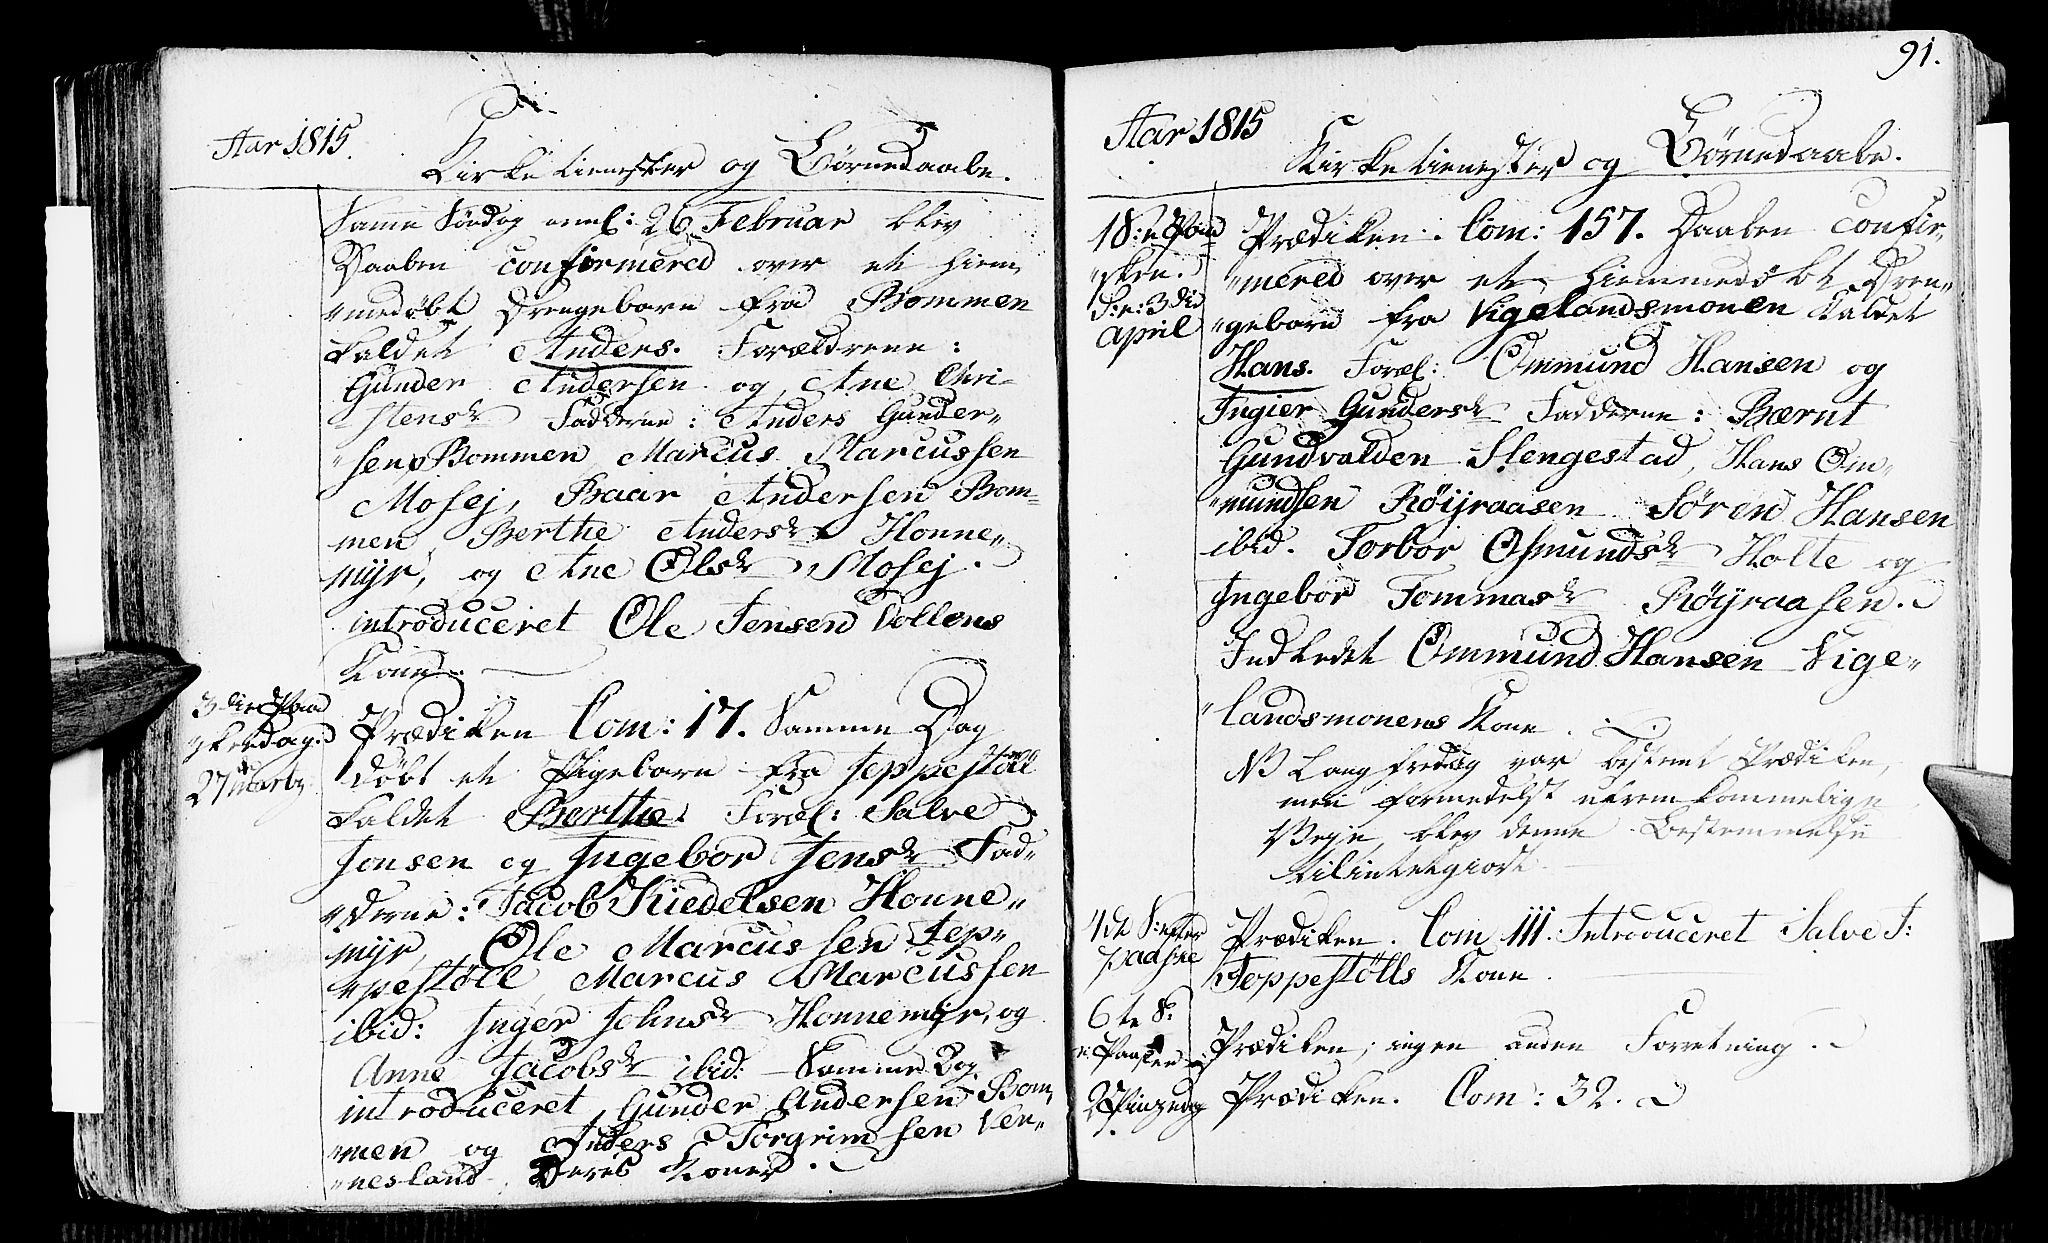 Aar 1815.
Kirketienester og Börnedaabe.
Samme Söndag neml: 26 Februar blev
Daaben confirmered over et hiem,,
,,medöbt Drengebarn fra Bommen
kaldet Anders. Forældrene:
Gunder Andersen og Ane Chri-
stensdr Fadderne: Anders Gunder,,
,,sen Bommen Marcus Marcussen
Mosej, Baar Andersen Bom=
men Berthe Andersdr Honne,,
myr, og Ane Olsdr Mosej.
introduceret Ole Jensen Vollens
Kone.
3die Paa
skedag.
27 Marts
Prædiken Com: 17. Samme Dag
döbt et Pigebarn fra Jeppestöll
kaldet Berthe. Foræl: Salve
Jonsen og Ingebor Jensdr Fad,,
,,derne: Jacob Kiedelsen Honne,,
myr, Ole Marcussen Jep,,
,,pestöll Marcus Marcussen
ibid: Inger Johnsdr Honnemyr, og
Anne Jacobsdr ibid: Samme Dag
introduceret Gunder Andersen Bom,,
,,men og Anders Torgrimsen Ven,,
,,nesland Deres Koner.
91.
Aar 1815
Kirketienester og Börnedaabe.
18: n
d: e: 3die
April
Prædiken. Com: 157. Daaben confir,,
,,mered over et hiemmedöbt Dren,,
,,gebarn fra Vigelandsmonen kaldet
Hans. Foræl: Ommund Hansen og
Ingier Gundersdr Fadderne: Bærnt
Gundvalden Stengestad, Hans Om,,
,,mundsen Röijraasen Sören Hansen
ibid. Torbor Osmundsdr Holte og
Ingebor Tommasdr Röijraasen.
Indledet Ommund Hansen Vige,,
,,landsmonens Kone.
NB Langfredag var bestemt Prædiken,
men formedelst ufremkommelige
Veje, blev denne Bestemmelse
tilintetgiort.
4de S: efter
paaske
Prædiken. Com 111. Introduceret Salve J:
Jeppestölls Kone.
6te S:
e: Paaske
Prædiken, ingen anden Forretning.
2 Pinzedag
Prædiken. Com: 32.